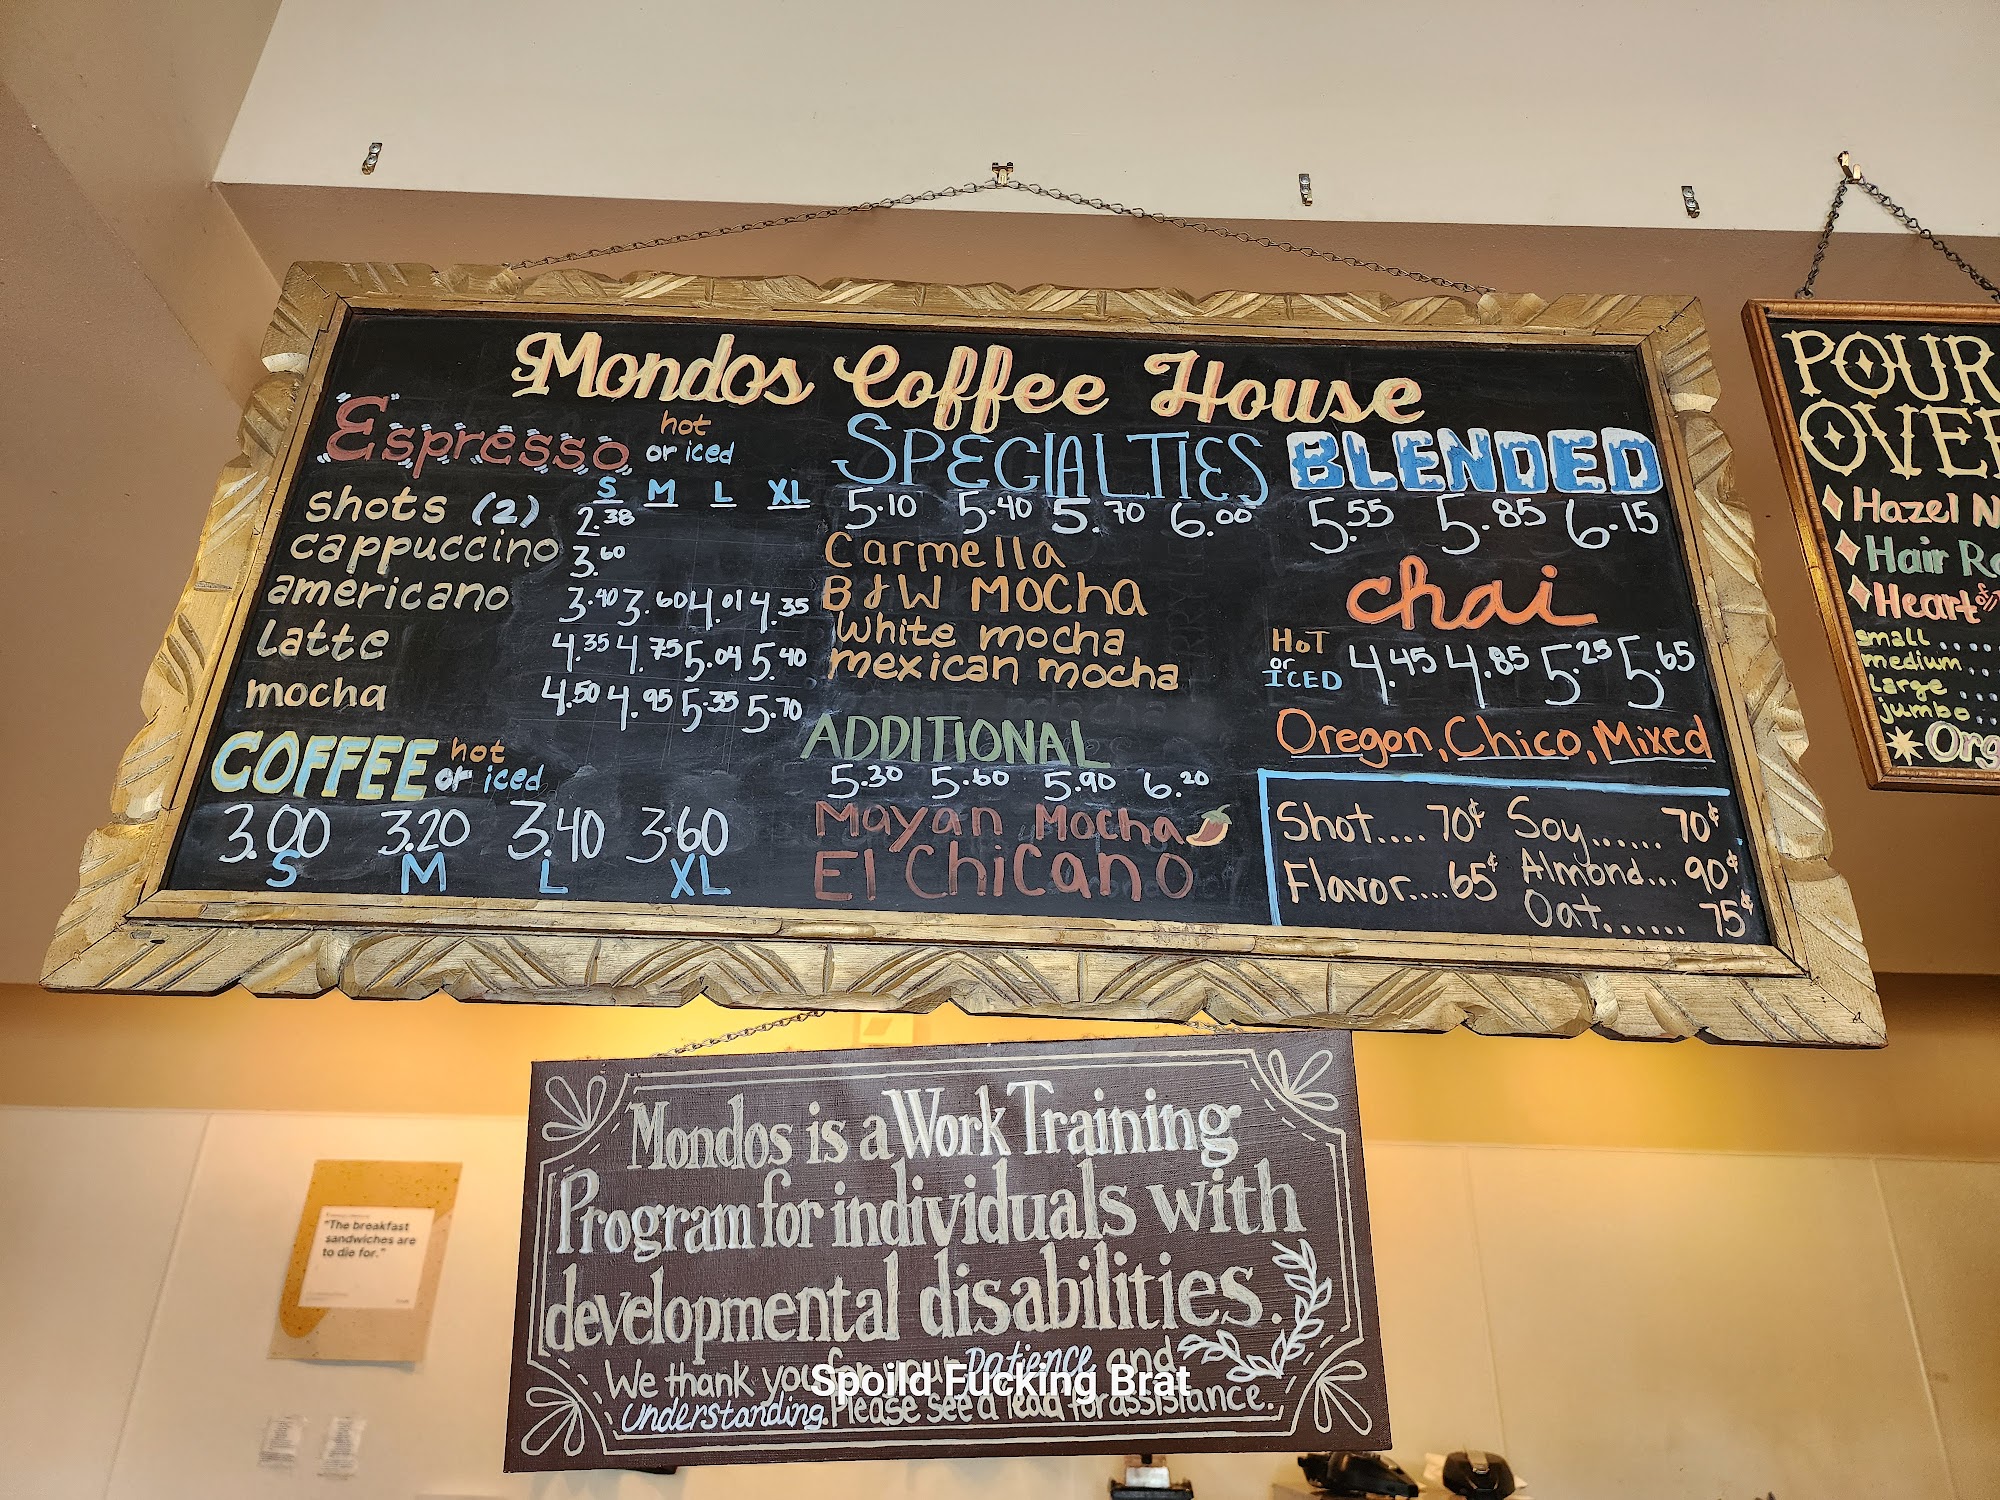 Mondos Coffee House
Espresso hot
or iced
S M L XL
shots (2) 2.38
cappuccino 3.60
americano 3.40 3.60 4.01 4.35
latte 4.35 4.75 5.04 5.40
mocha 4.50 4.95 5.35 5.70
COFFEE hot
or iced
3.00 3.20 3.40 3.60
S M L XL
SPECIALTIES
5.10 5.40 5.70 6.00
Carmella
B&W MOCHa
White mocha
mexican mocha
ADDITIONAL
5.30 5.60 5.90 6.20
Mayan Mocha
El Chicano
BLENDED
5.55 5.85 6.15
chai
HOT
or
ICED
4.45 4.85 5.25 5.65
Oregon, Chico, Mixed
Shot.... 70¢ Soy...... 70¢
Flavor.... 65¢ Almond... 90¢
Oat...... 75¢
POUR
OVER
Hazel N
Hair R
Heart of
small ....
medium ..
Large ...
jumbo..
Org
Mondos is a Work Training
Program for individuals with
developmental disabilities.
We thank you for your Patience and
Understanding. Please see a lead for assistance.
Spoild Fucking Brat
"The breakfast
sandwiches are
to die for."